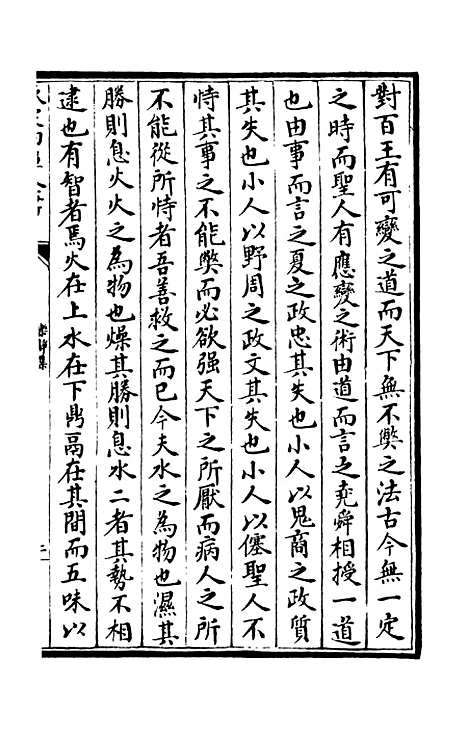 對百王有可變之道而天下無不獘之法古今無一定
之時而聖人有應變之術由道而言之堯舜相授一道
也由事而言之夏之政忠其失也小人以鬼商之政質
其失也小人以野周之政文其失也小人以僿聖人不
恃其事之不能獘而必欲强天下之所厭而病人之所
不能從所恃者吾善救之而已今夫水之為物也濕其
勝則息火火之為物也燥其勝則息水二者其勢不相
逮也有智者焉火在上水在下鼎鬲在其間而五味以